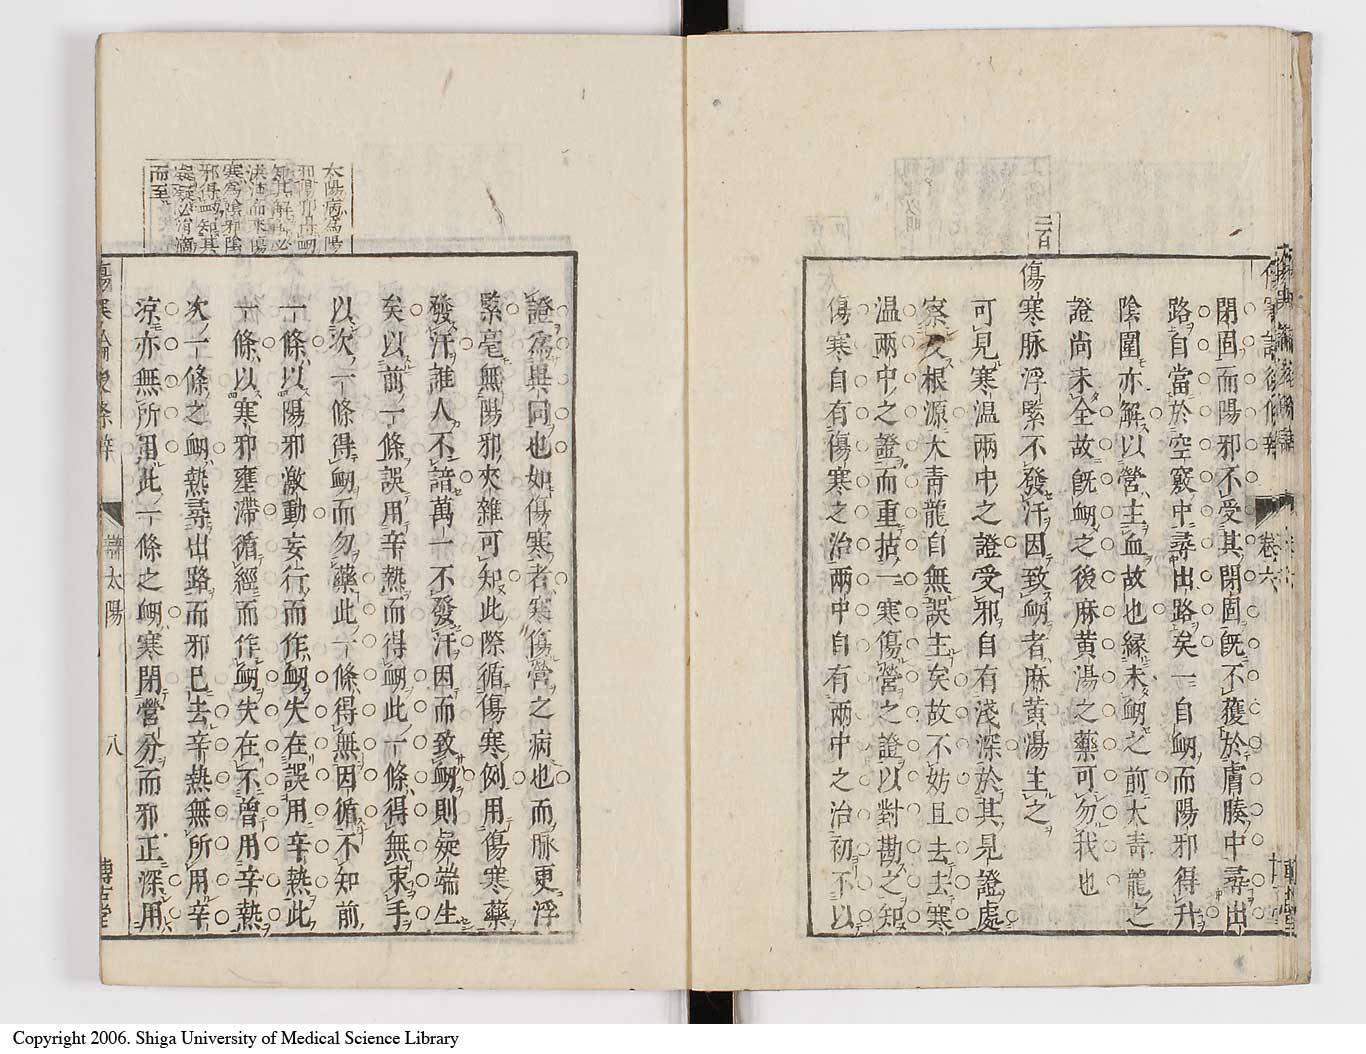 閉固而陽邪不受其閉固既不獲於膚腠中尋出
路自當於空竅中尋出路矣一自衂而陽邪得升
陰圍亦解以營主血故也緣未衂之前大青龍之
證尚未全故既衂之後麻黃湯之藥可勿我也
二百
傷寒脉浮緊不發汗因致衂者麻黃湯主之
可見寒温兩中之證受邪自有淺深於其見證處
察及根源大青龍自無誤主矣故不妨且去去寒
温兩中之證而重拈一寒傷營之證以對勘之知
傷寒自有傷寒之治兩中自有兩中之治初不以
卷六
太陽病爲陽
邪陽
知其解
洪
寒爲陰邪陰
邪得衂知其
疑必消滴
而至
證爲異同也如傷寒者寒傷營之病也而脉更浮
緊毫無陽邪夾雜可知此際循傷寒例用傷寒藥
發汗誰人不諳萬一不發汗因而致衂則疑端生
矣以前一條誤用辛熱而得衂此一條得無束手
以次一條得衂而勿藥此一條得無因循不知前
一條以陽邪激動妄行而作衂失在誤用辛熱此
一條以寒邪壅滯循經而作衂失在不曾用辛熱
次一條之衂熱尋出路而邪已去辛熱無所用辛
凉亦無所用此一條之衂寒閉營分而邪正深用
太陽
八
Copyright 2006. Shiga University of Medical Science Library